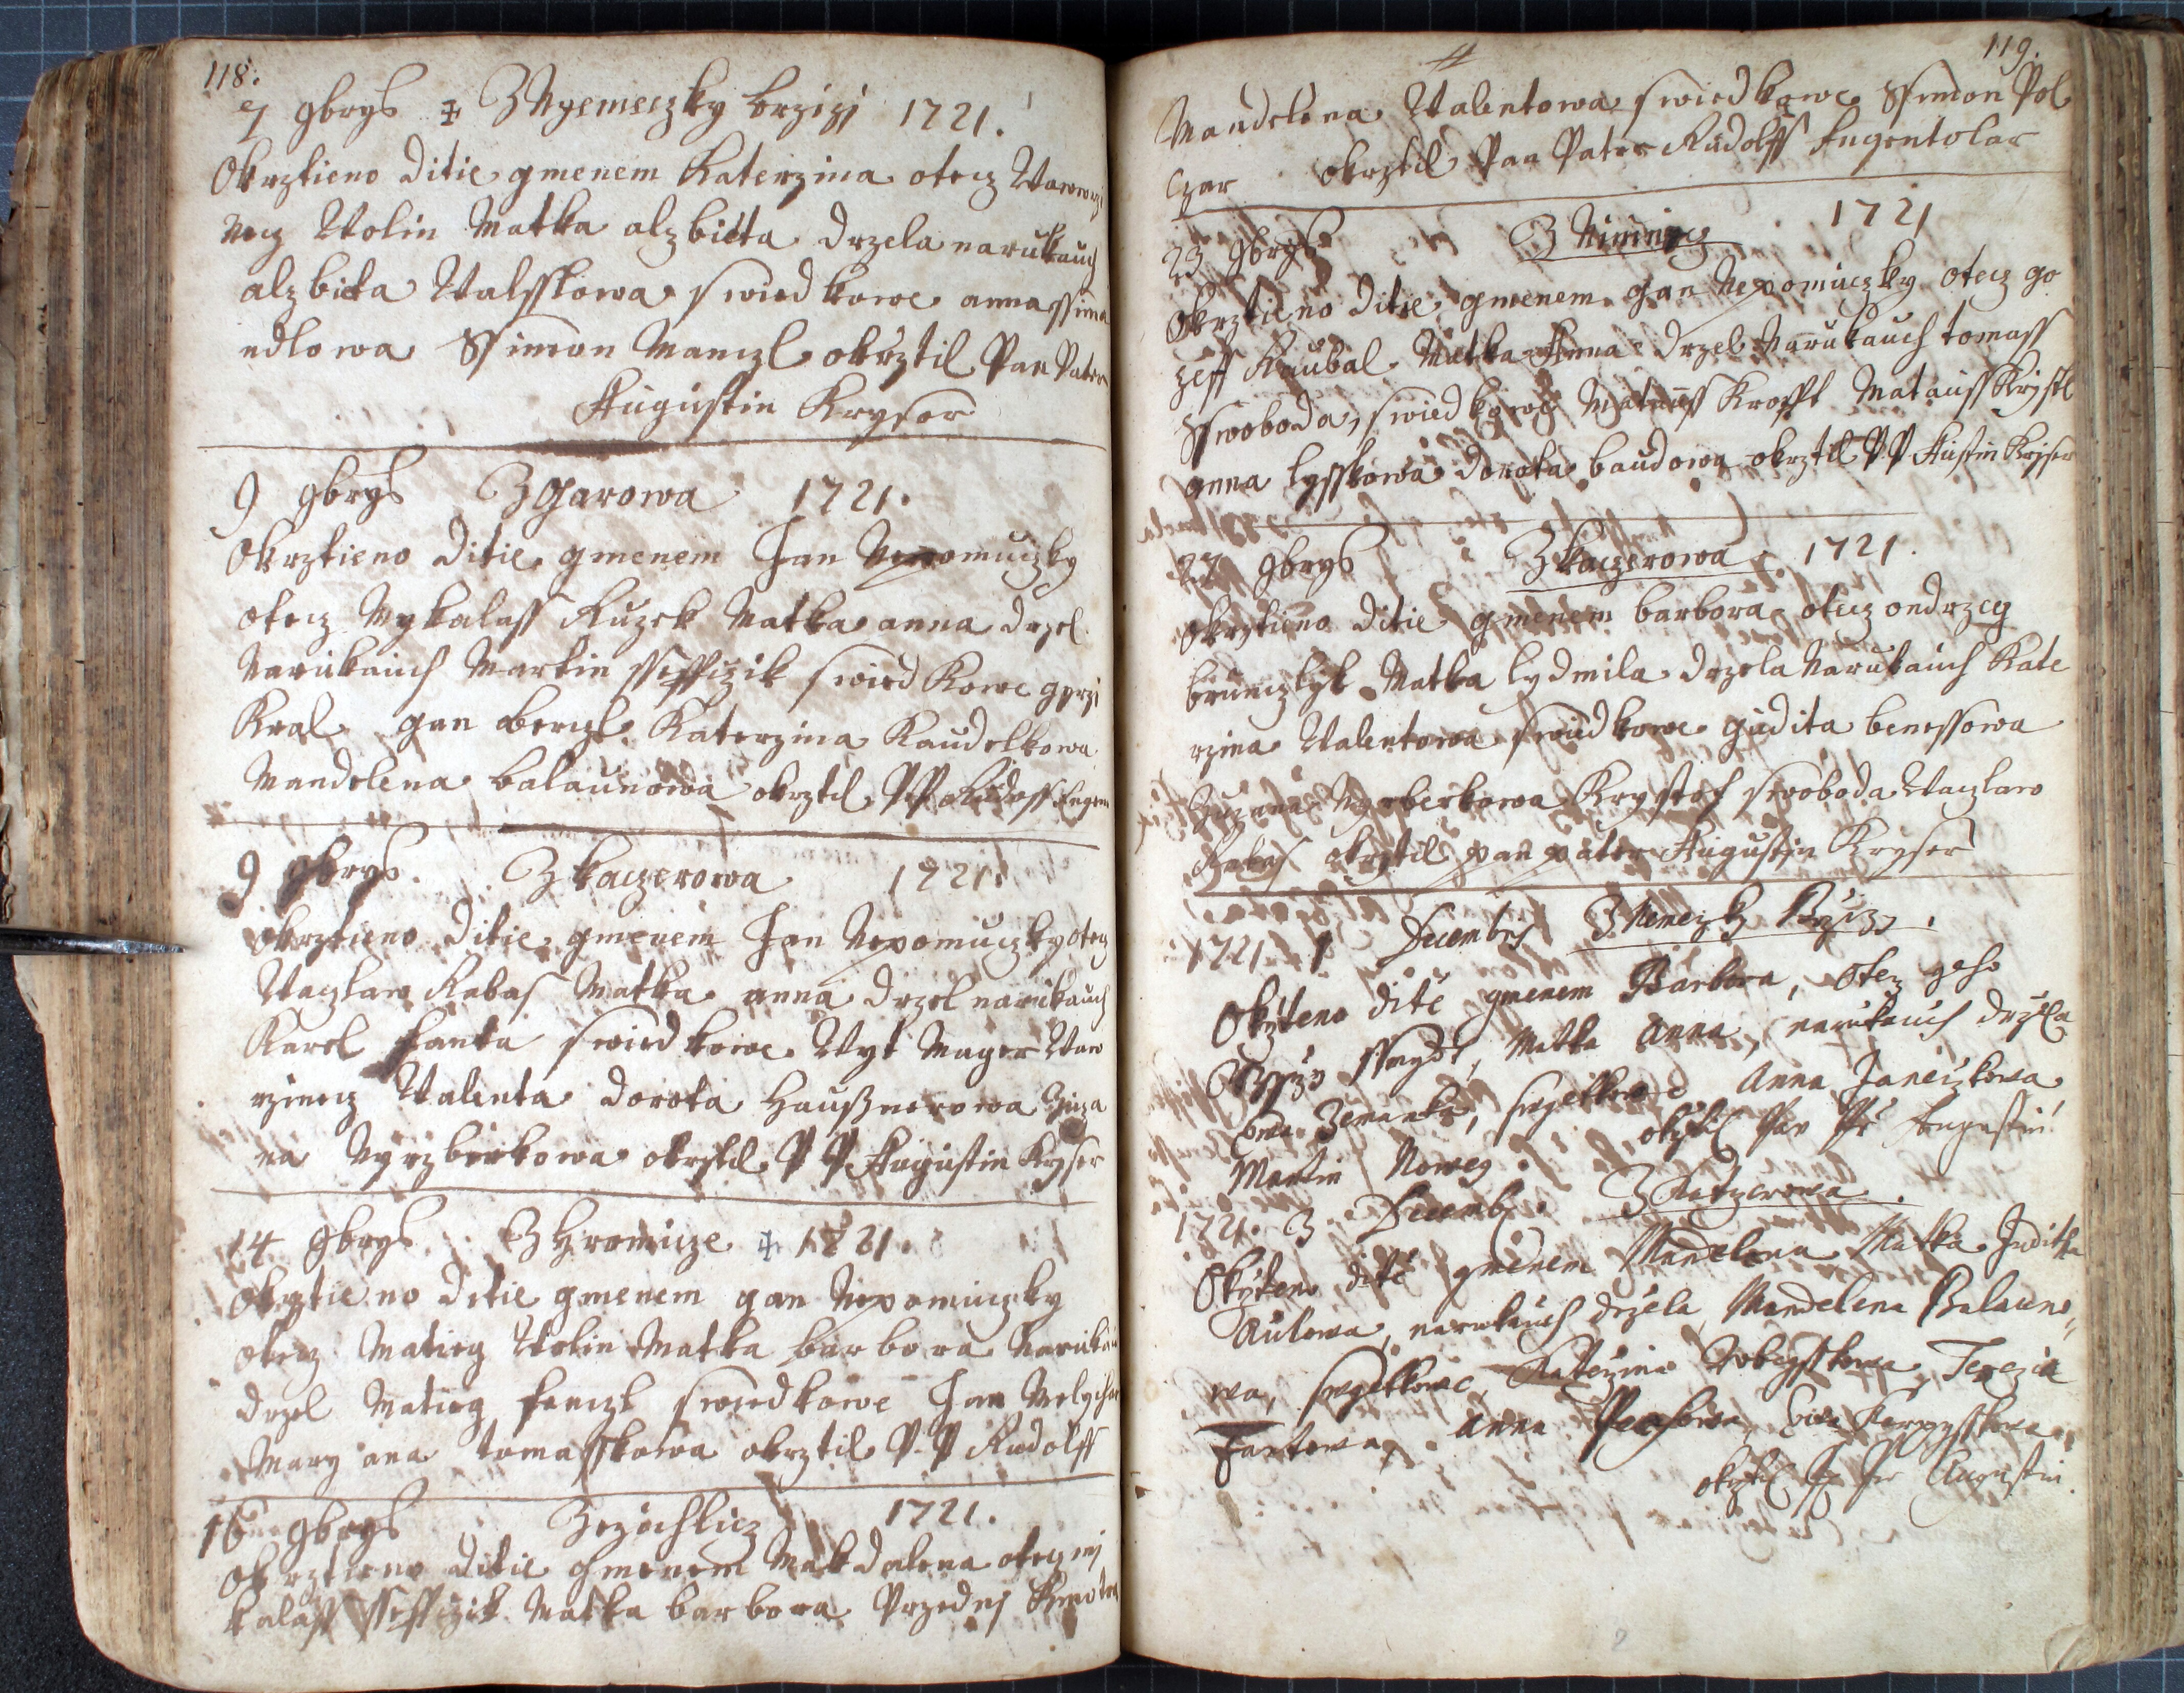 118.
7 9brys ‡ Z Nyemeczky brzizy 1721.
Okrztieno Ditie gmenem Katerzina otecz Wawrzi
necz Wolin Matka alzbieta drzela narukauch
alzbieta Walsskowa swiedkowe anna ssima
ndlowa Ssimon Manczl okrztil Pan Pater
Augustin Kryser
9 9brys Z Garowa 1721.
Okrztieno Ditie gmenem Jan Nepomuczky
otecz Mykalass Ruzek Matka anna drzel
Narukauch Martin sseffczik swiedkowe girzi
Kral gan Berczl Katerzina Kaudelkowa
Mandelena balaunowa okrztil P P Rudolff Eugen
9 9brys. Z kaczerowa 1721.
okrztieno Ditie gmenem Jan Nepomuczky otecz
Waczlaw Rabas Matka anna drzel narukauch
Karel fanta swiedkowe Wyt Mager Waw
rzinecz Walenta dorota Haußnerowa Zuza
na Nyrzberkowa okrztil P P Augustin Kryser
14 9brys Z Hromicze ‡ 1721.
okrztieno Ditie gmenem gan Nepomuczky
otecz Matieg Wolin Matka barbora Narukau
drzel Matieg fenczl swiedkowe Jan
Mary ana tomasskowa okrztil P. P Rudolff
16 9brys Zezichlicz 1721.
okrztieno ditie gmenem Makdalena otecz mi
kalass sseffczik Matka barbora Przedni Kmotra
119.
Mandelena Walentowa swiedkowe Ssimon Pol
czar okrztil Pan Pater Rudolff Eugentolar
23 9brys Z Nininicz 1721
Okrztieno Ditie gmenem gan Nepomuczky otecz go
zeff Kaubal Matka Anna drzel Narukauch tomass
Sswoboda, swiedkowe Matauss Krofft Matauss Krystl
anna lysskowa dorota baudowa okrztil P P Austin Kryser
27 9brys Z kaczerowa 1721.
okrztieno Ditie gmenem barbora otecz ondrzeg
brunczlyk Matka lydmila drzela Narukauch Kate
rzina Walentowa swiedkowe gudita benessowa
Zuzana Nyrberkowa Krystof swoboda Waczlaw
Rabas okrztil pan pater Augustin Kryser
1721 1 Decembrys Z Nemeczky Brzizy.
Okrżteno dítě gmenem Barbora, Otecz geho
Ssmydt, Matka Anna, narukauch držela
Ewa Zemanka, swietkowe Anna Janeczkowa
Martin Noweg. okrztil Pan Pr Augustin
1721. 3 Decemb. Z Katzerowa.
Okrżteno dítě gmenem Mandelena Matka Juditha
Paulowa, narukauch držela, Mandelena Balauno,,
wa, swietkowe, Katerzina Terezia
Fantowa, Anna Ewa
okrztil P. Pr Augustin